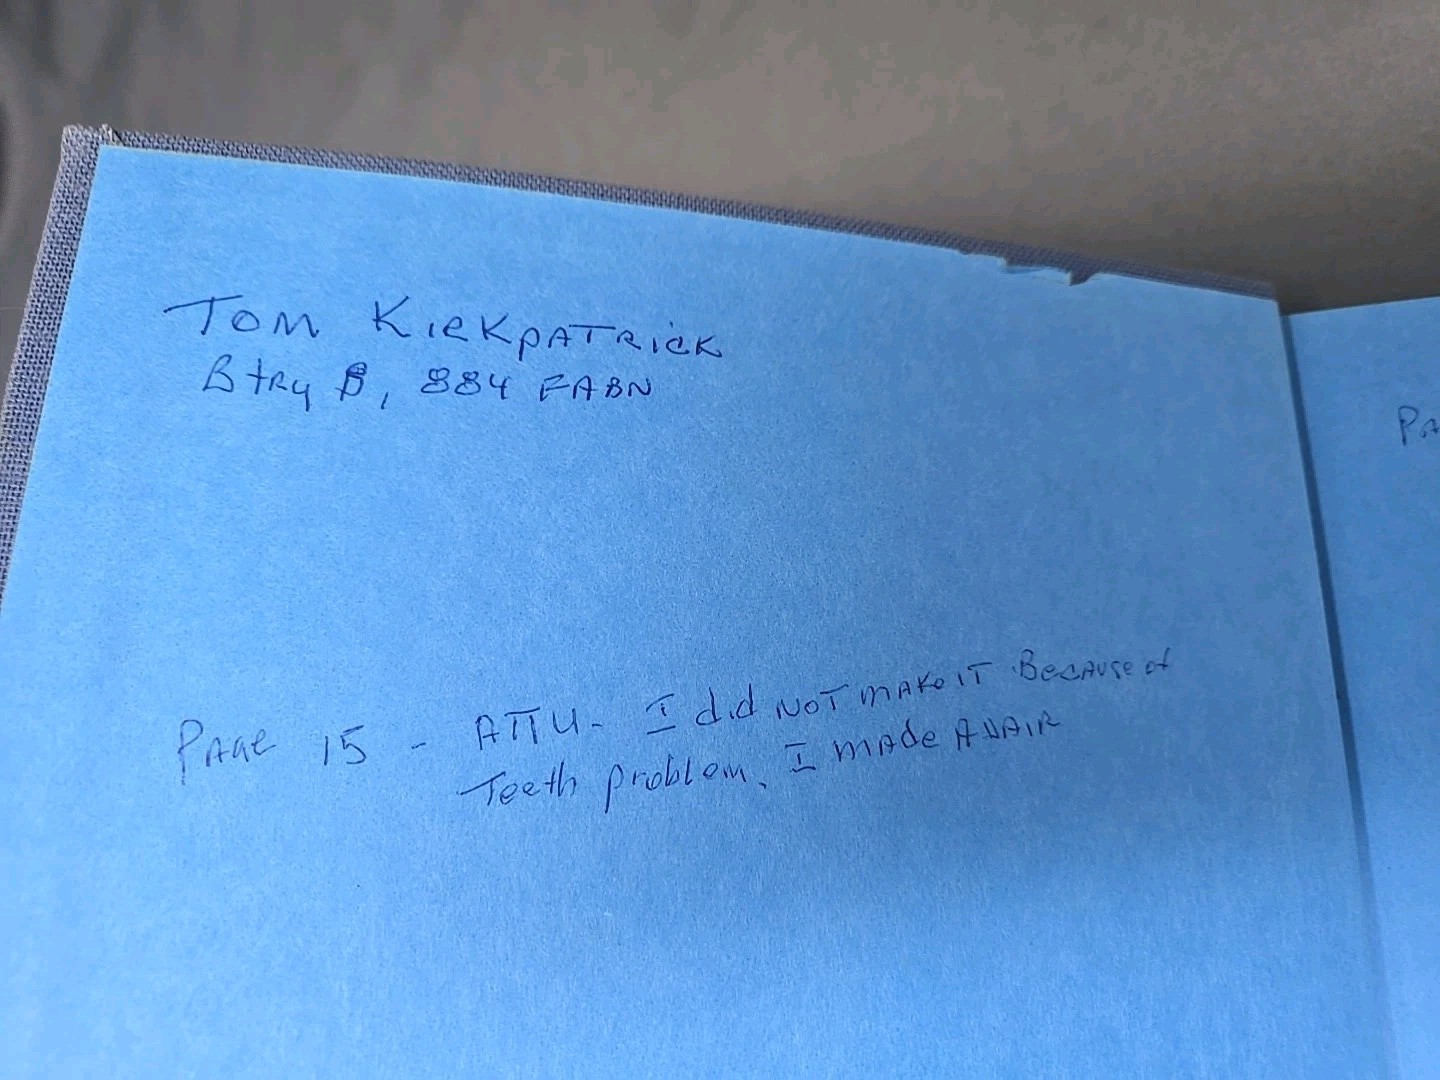 Tom Kirkpatrick
Btry B, 884 FABN
Page 15 - ATTU - I did NOT MAKE IT Because of
Teeth problem. I MADE ADAIR
PA